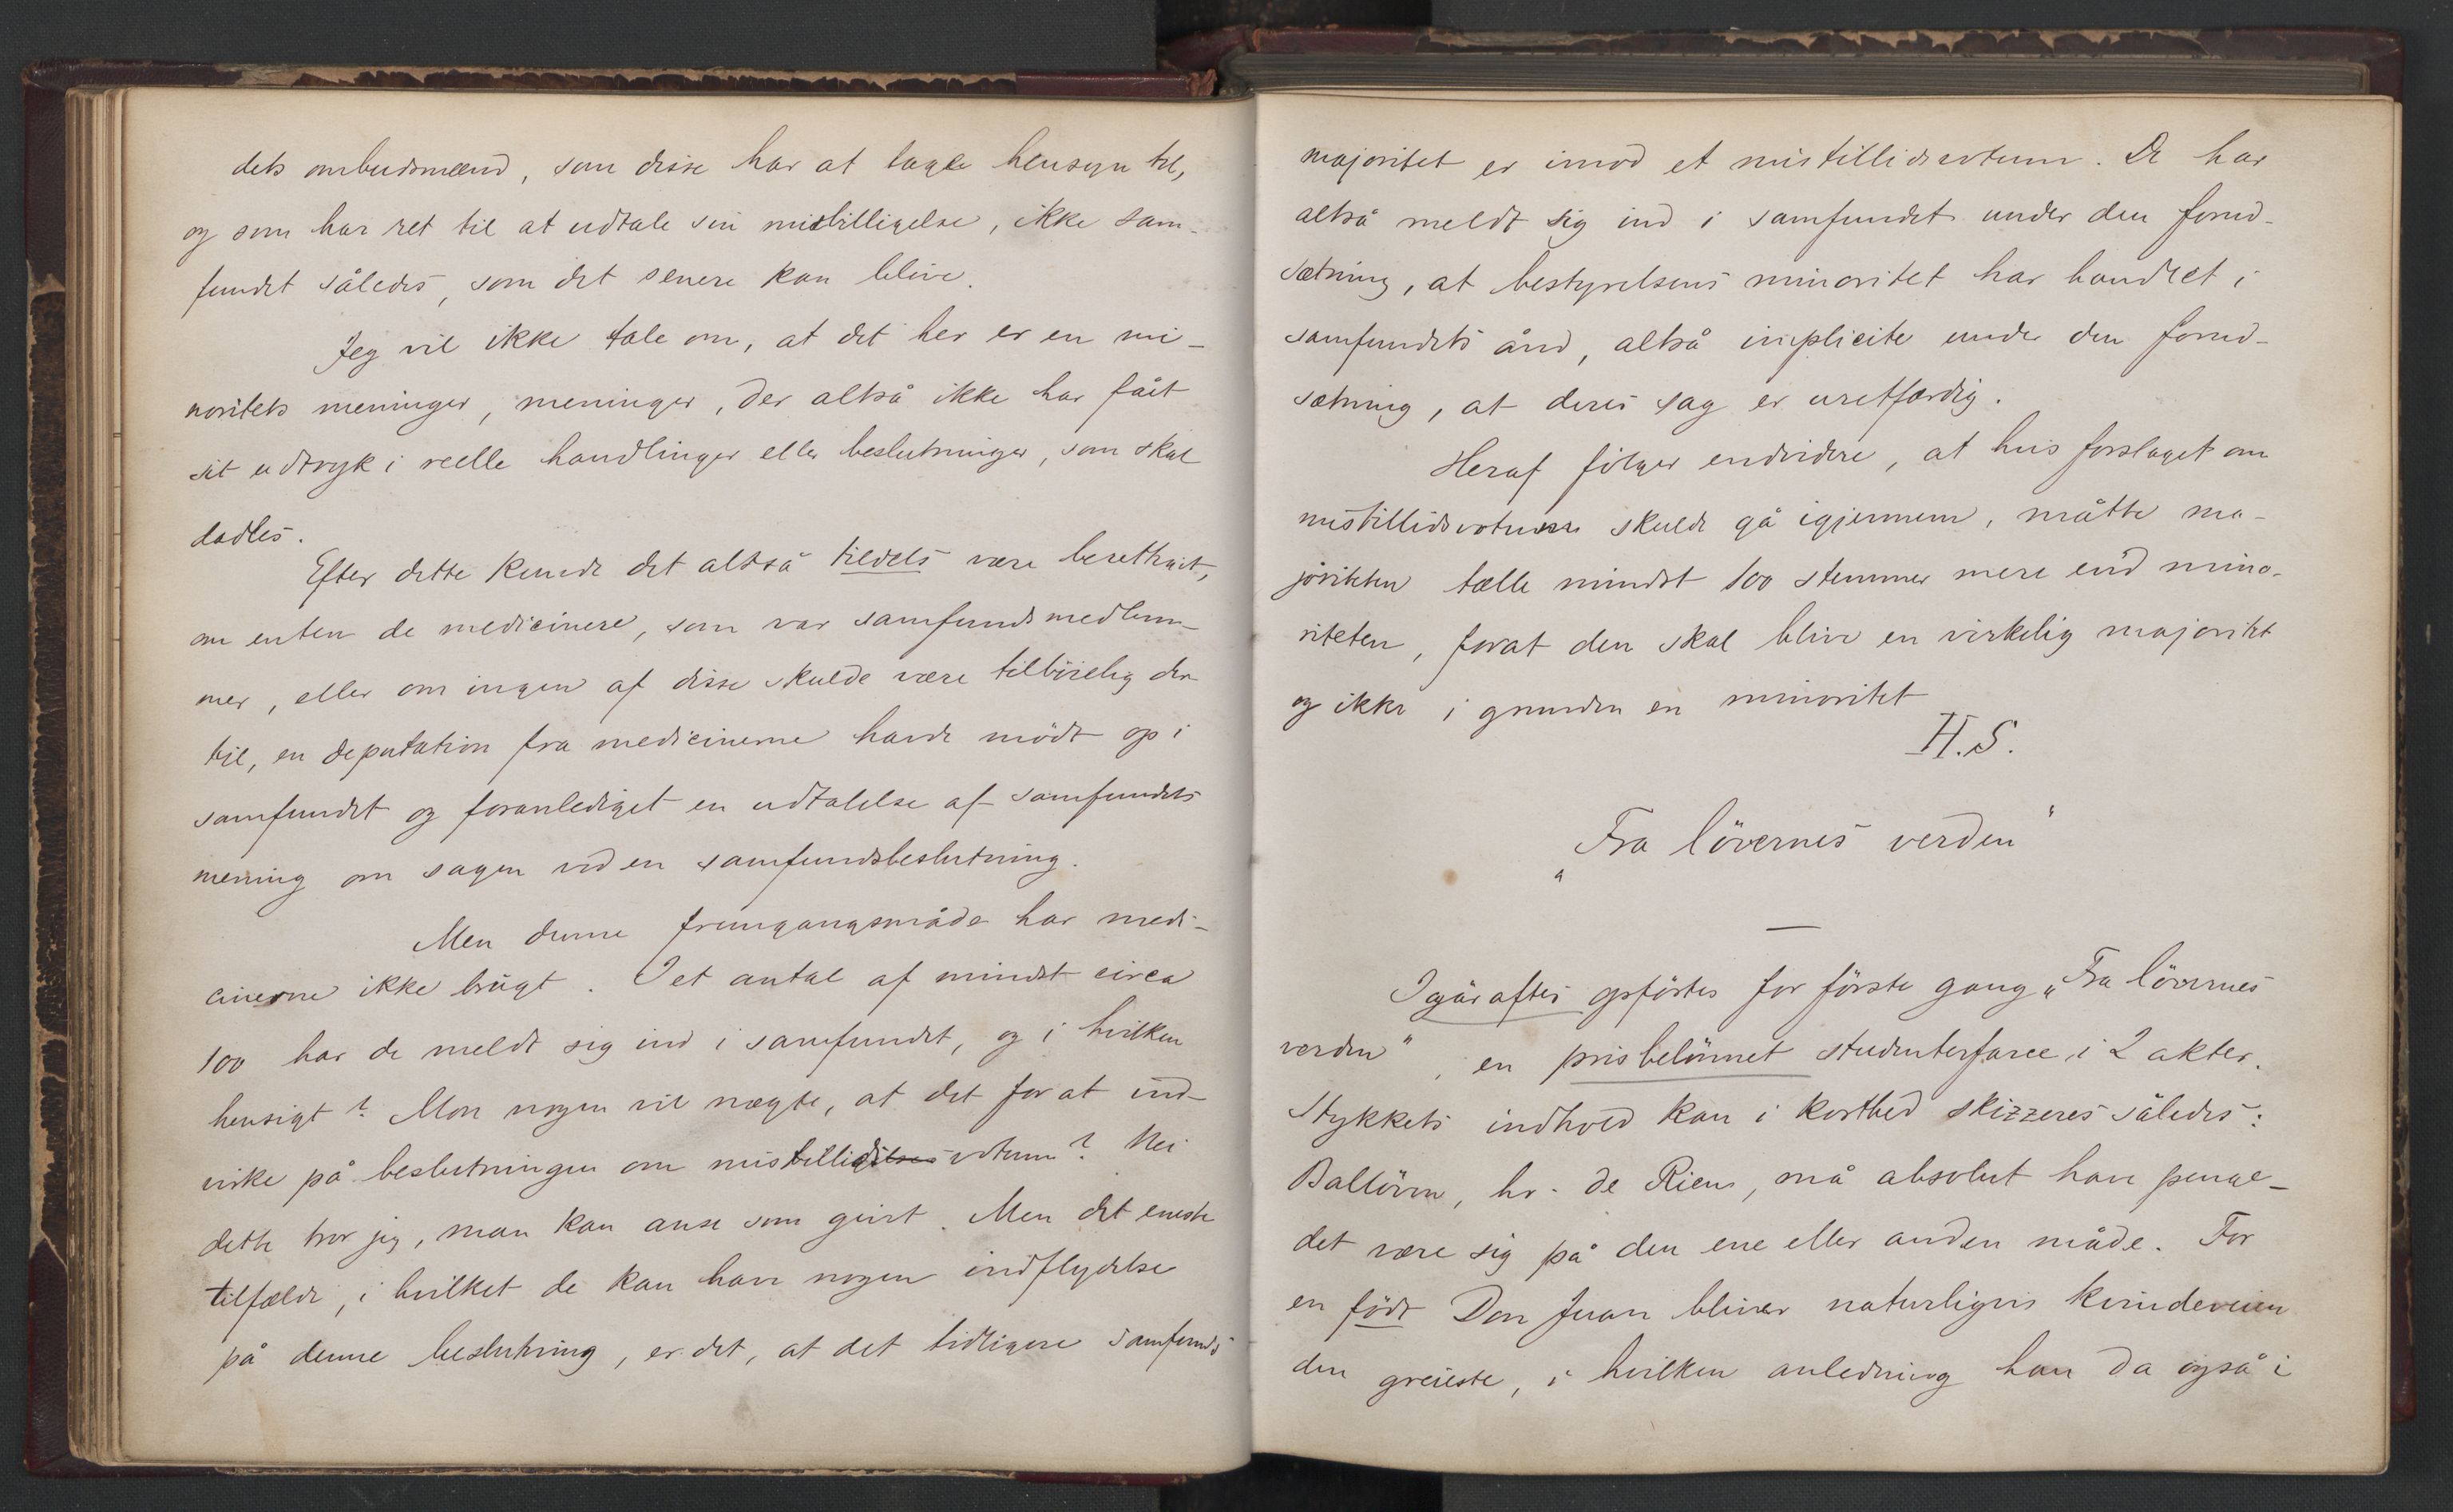 dets ombudsmænd, som disse har at tage hensyn til,
og som har ret til at udtale sin misbilligelse, ikke sam-
fundet således, som det senere kan blive.
Jeg vil ikke tale om, at det her er en mi-
noritets meninger, meninger, der altså ikke har fået
sit udtryk i reelle handlinger eller beslutninger, som skal
dadles.
Efter dette kunde det altså tildels være berettiget,
om enten de medicinere, som var samfundsmedlem-
mer, eller om ingen af disse skulde være tilbörlig der-
til, en deputation fra medicinerne havde mödt op i
samfundet og foranlediget en udtalelse af samfundets
mening om sagen ved en samfundsbeslutning.
Men denne fremgangsmåde har medi-
cinerne ikke brugt. I et antal af mindst circa
100 har de meldt sig ind i samfundet, og i hvilken
hensigt? Mon nogen vil nægte, at det for at ind-
virke på beslutningen om mistillidsvotum? Nei
dette tror jeg, man kan anse som givet. Men det eneste
tilfælde, i hvilket de kan have nogen indflydelse
på denne beslutning, er det, at det tidligere samfunds
majoritet er imod et mistillidsvotum. De har
altså meldt sig ind i samfundet under den forud-
sætning, at bestyrelsens minoritet har handlet i
samfundets ånd, altså implicite under den forud-
sætning, at deres sag er uretfærdig.
Heraf fölger endvidere, at hvis forslaget om
mistillidsvotum skulde gå igjennem, måtte ma-
joriteten tælle mindst 100 stemmer mere end mino-
riteten, forat den skal blive en virkelig majoritet
og ikke i grunden en minoritet
H.S.
"Fra lövernes verden"
Igår aftes opförtes for förste gang "Fra lövernes
verden", en prisbelönnet studenterfarce i 2 akter.
Stykkets indhold kan i korthed skizzeres således:
Ballöven, hr. de Rien, må absolut have penge-
det være sig på den ene eller anden måde. For
en födt Don Juan bliver naturligvis kvindeveien
den greieste, i hvilken anledning han da også i